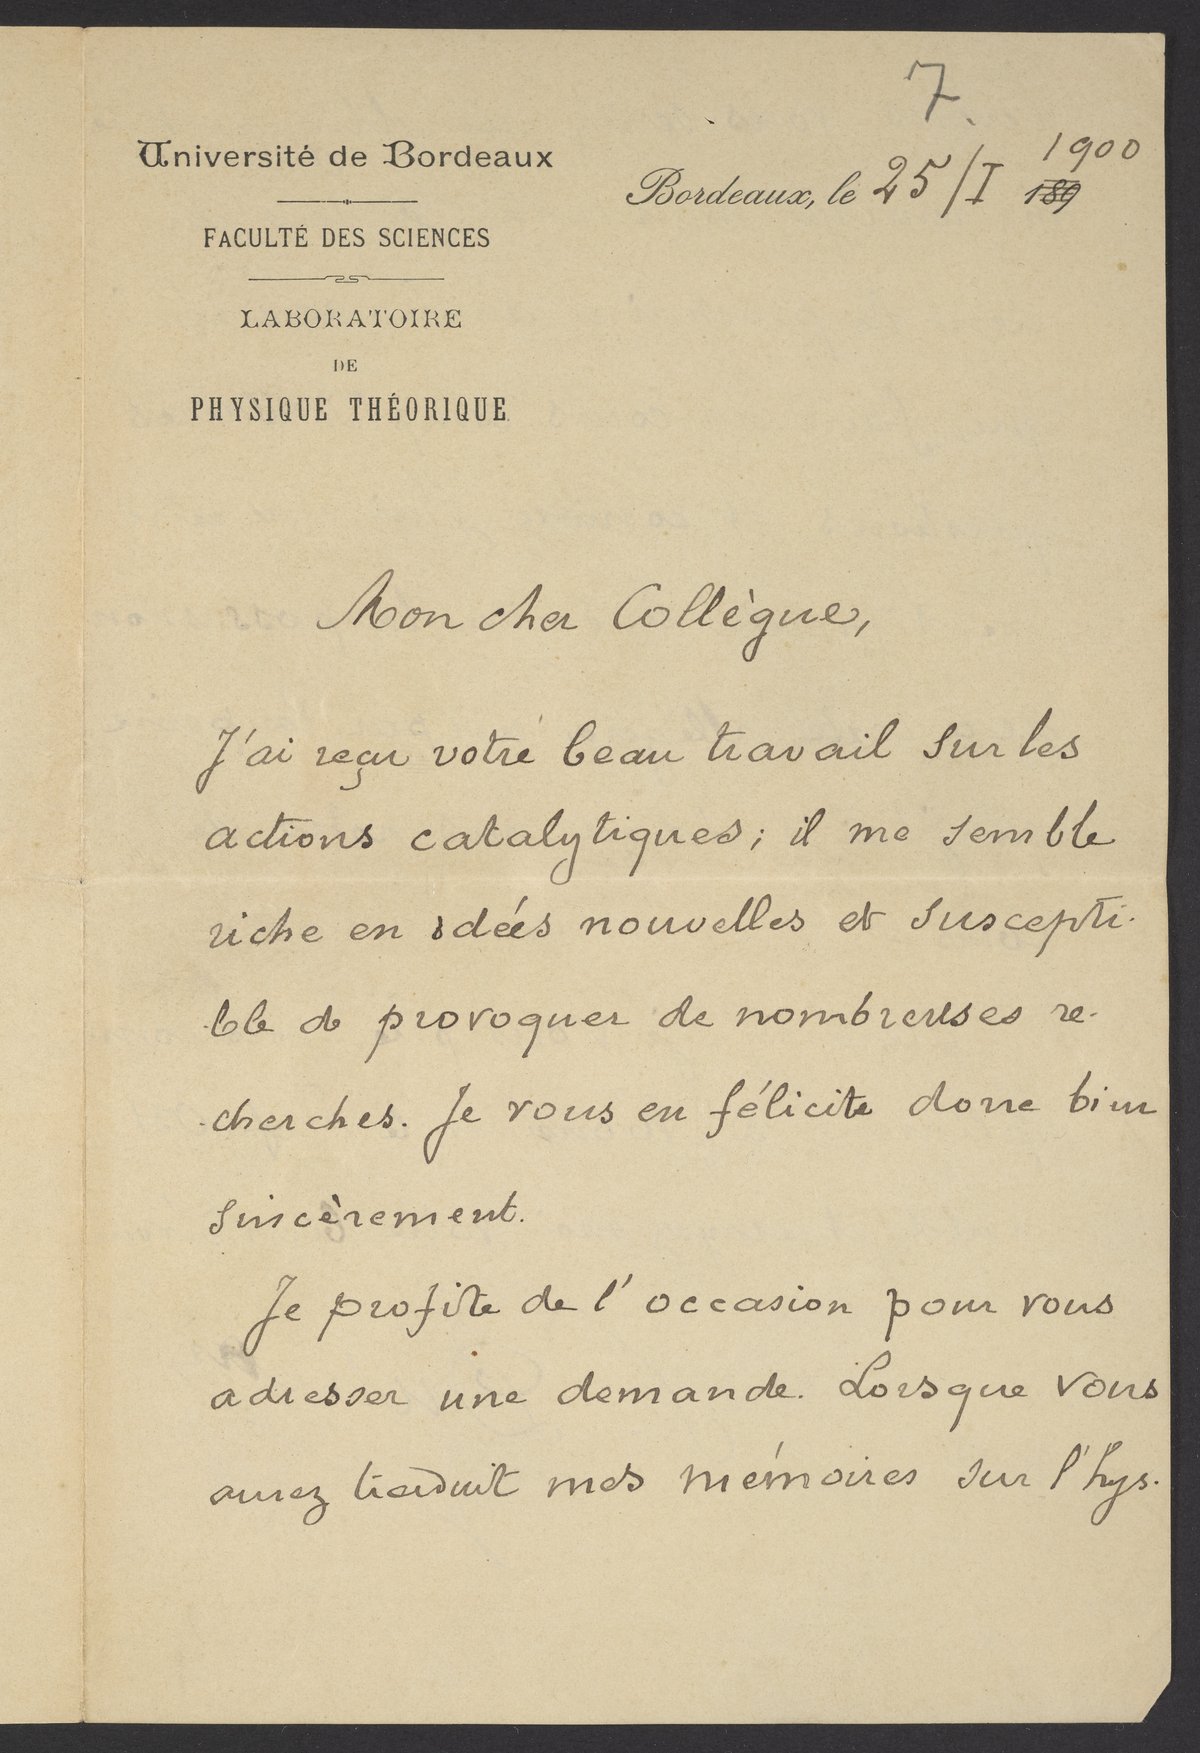 7.
Université de Bordeaux
FACULTÉ DES SCIENCES
LABORATOIRE
DE
PHYSIQUE THÉORIQUE
Bordeaux, le 25/I 189 1900
Mon cher Collègue,
J'ai reçu votre beau travail sur les
actions catalytiques; il me semble
riche en idées nouvelles et suscepti-
-ble de provoquer de nombreuses re-
-cherches. Je vous en félicite donc bien
sincèrement.
Je profite de l'occasion pour vous
adresser une demande. Lorsque vous
aurez traduit mes mémoires sur l'hys-